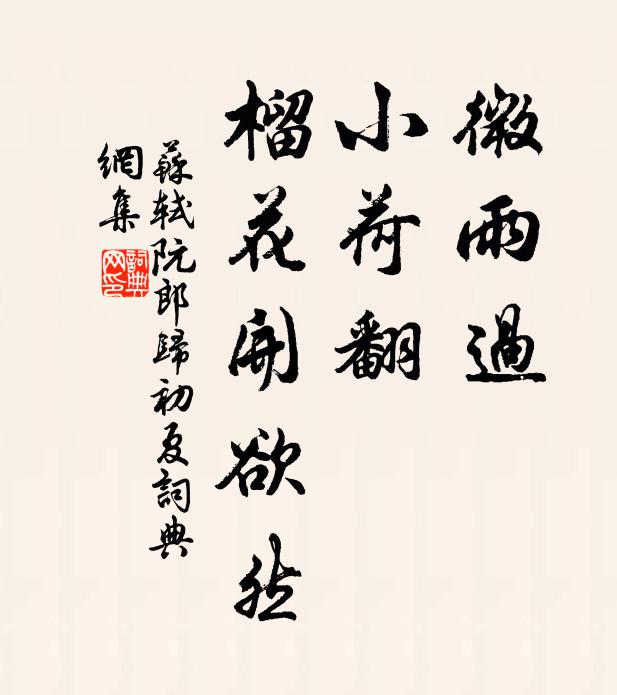 微雨過
小荷翻
榴花開欲然
蘇軾阮郎歸初夏詞典
網集
詞典網印